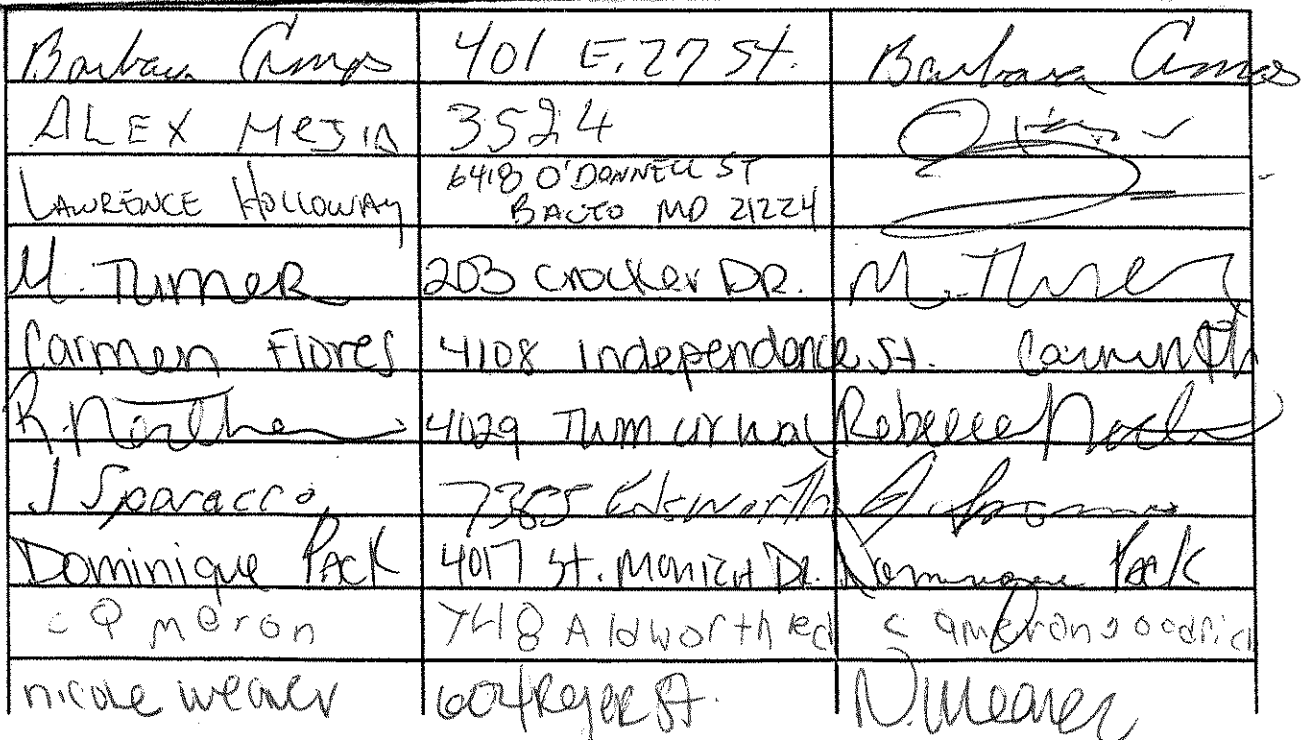 Barbara Amos 401 E. 27 St. Barbara Amos
ALEX MEJIA 3524
LAWRENCE HOLLOWAY 6418 O'DONNELL ST
BALTO MD 21224
M. TURNER 203 Crocker DR. M. Turner
Carmen Flores 4108 Independence St. Carmen
R. 4029 Rebecca
J Sparacco 7365
Dominique Pack 4017 St. Monica Dr. Dominique Pack
cameron 748 Aldworth Rd cameron goodrich
nicole weaver 604 St. N. Weaver